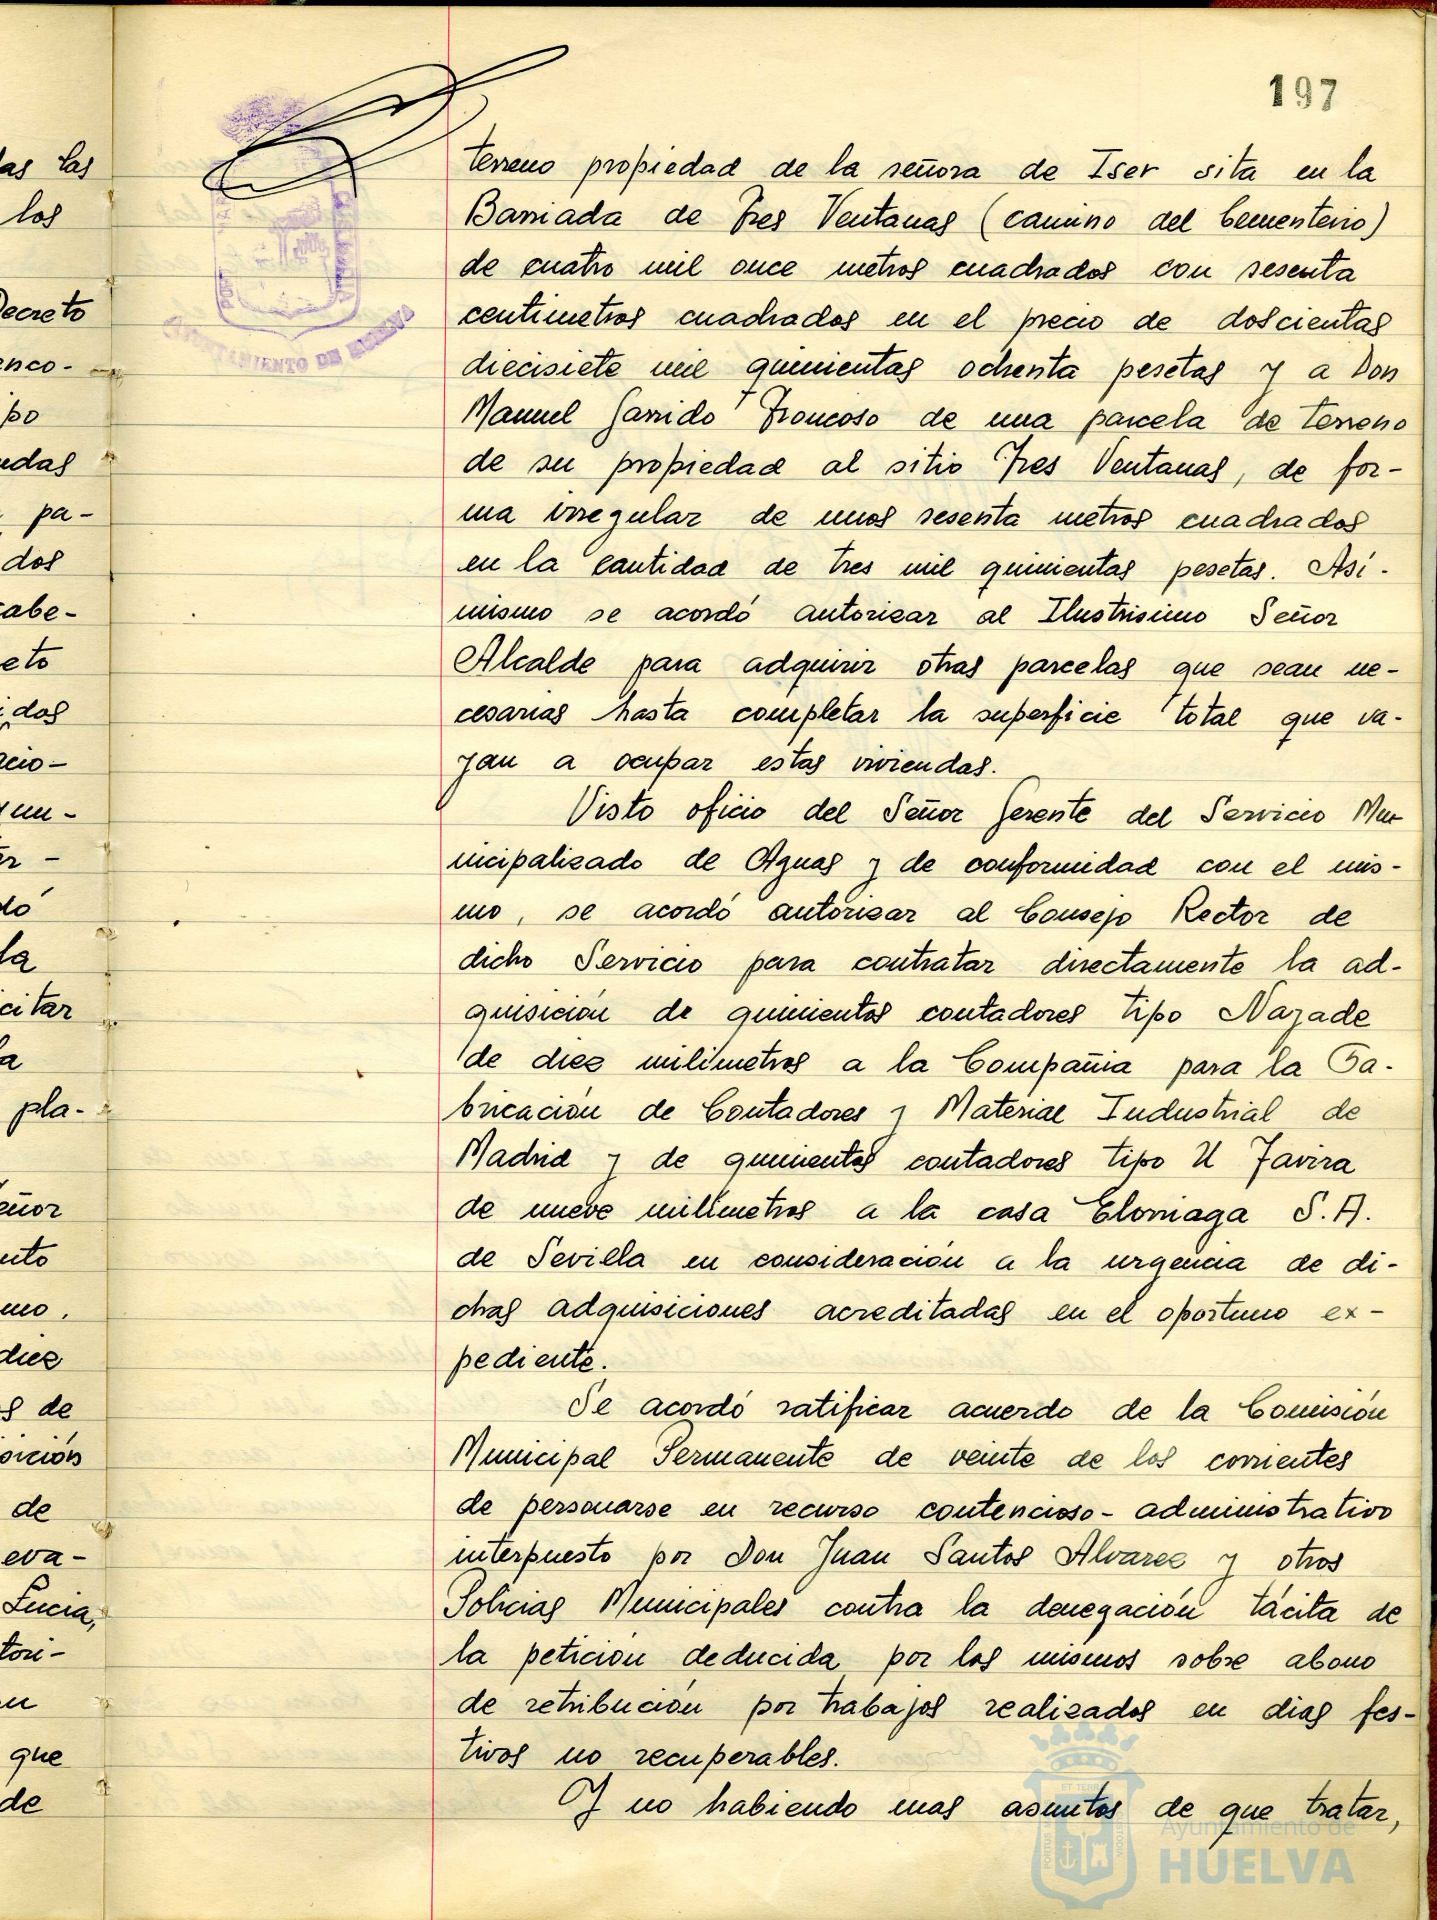 197
terreno propiedad de la señora de Iser sita en la
Barriada de Tres Ventanas (camino del Cementerio)
de cuatro mil once metros cuadrados con sesenta
centimetros cuadrados en el precio de doscientas
diecisiete mil quinientas ochenta pesetas y a Don
Manuel Garrido Troncoso de una parcela de terreno
de su propiedad al sitio Tres Ventanas, de for-
ma irregular de unos sesenta metros cuadrados
en la cantidad de tres mil quinientas pesetas. Así-
mismo se acordó autorizar al Ilustrisimo Señor
Alcalde para adquirir otras parcelas que sean ne-
cesarias hasta completar la superficie total que va-
yan a ocupar estas viviendas.
Visto oficio del Señor Gerente del Servicio Mu-
nicipalizado de Aguas y de conformidad con el mis-
mo, se acordó autorizar al Consejo Rector de
dicho Servicio para contratar directamente la ad-
quisición de quinientos contadores tipo Nazade
de diez milímetros a la Compañia para la Fa-
bricación de Contadores y Material Industrial de
Madrid y de quinientos contadores tipo U Tavira
de nueve milímetros a la casa Elorriaga S.A.
de Sevilla en consideración a la urgencia de di-
chas adquisiciones acreditadas en el oportuno ex-
pediente.
Se acordó ratificar acuerdo de la Comisión
Municipal Permanente de veinte de los corrientes
de personarse en recurso contencioso-administrativo
interpuesto por Don Juan Santos Alvarez y otros
Policias Municipales contra la denegación tácita de
la petición deducida por los mismos sobre abono
de retribución por trabajos realizados en dias fes-
tivos no recuperables.
Y no habiendo mas asuntos de que tratar,
AYUNTAMIENTO DE HUELVA
Ayuntamiento de
HUELVA
das las
los
Decreto
enco-
ipo
udas
pa-
dos
cabe-
eto
idos
cio-
yun-
er-
dó
la
citar
la
pla-
eñor
uto
mo.
diez
s de
sición
de
eva-
Lucia,
tori-
que
de